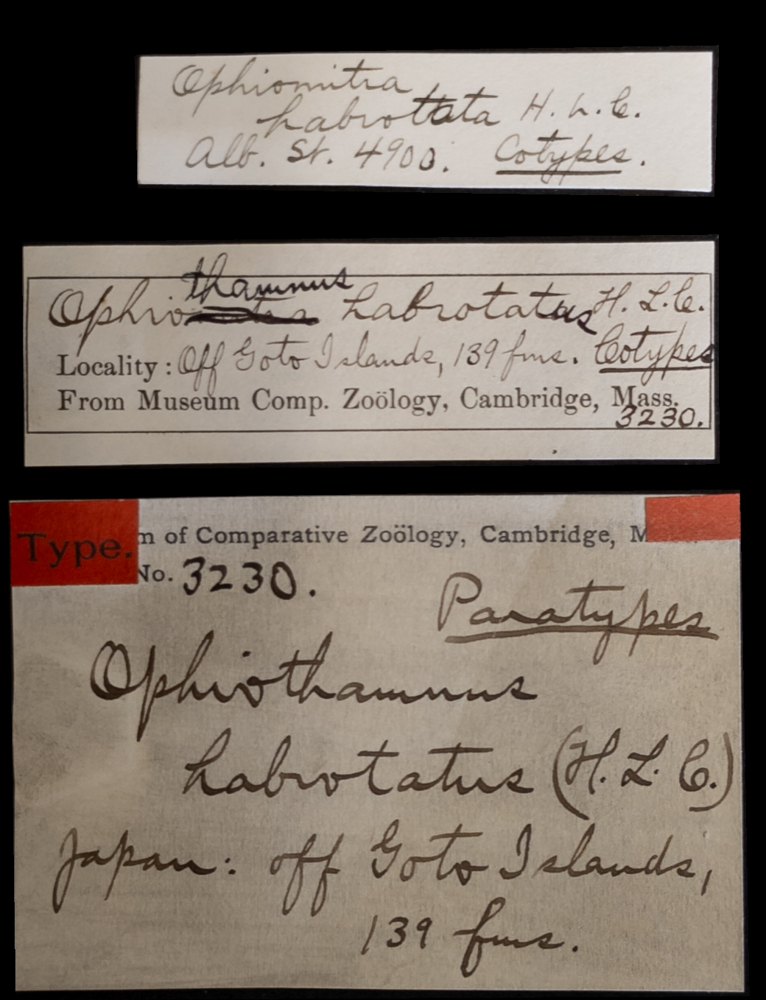 Ophiomitra
habrotata H. L. C.
Alb. St. 4900. Cotypes.
thamnus
Ophiomitra habrotatus H. L. C.
Locality: Off Goto Islands, 139 fms. Cotypes
From Museum Comp. Zoölogy, Cambridge, Mass.
3230.
Type. m of Comparative Zoölogy, Cambridge, M
No. 3230.
Paratypes
Ophiothamnus
habrotatus (H. L. C.)
Japan: off Goto Islands,
139 fms.